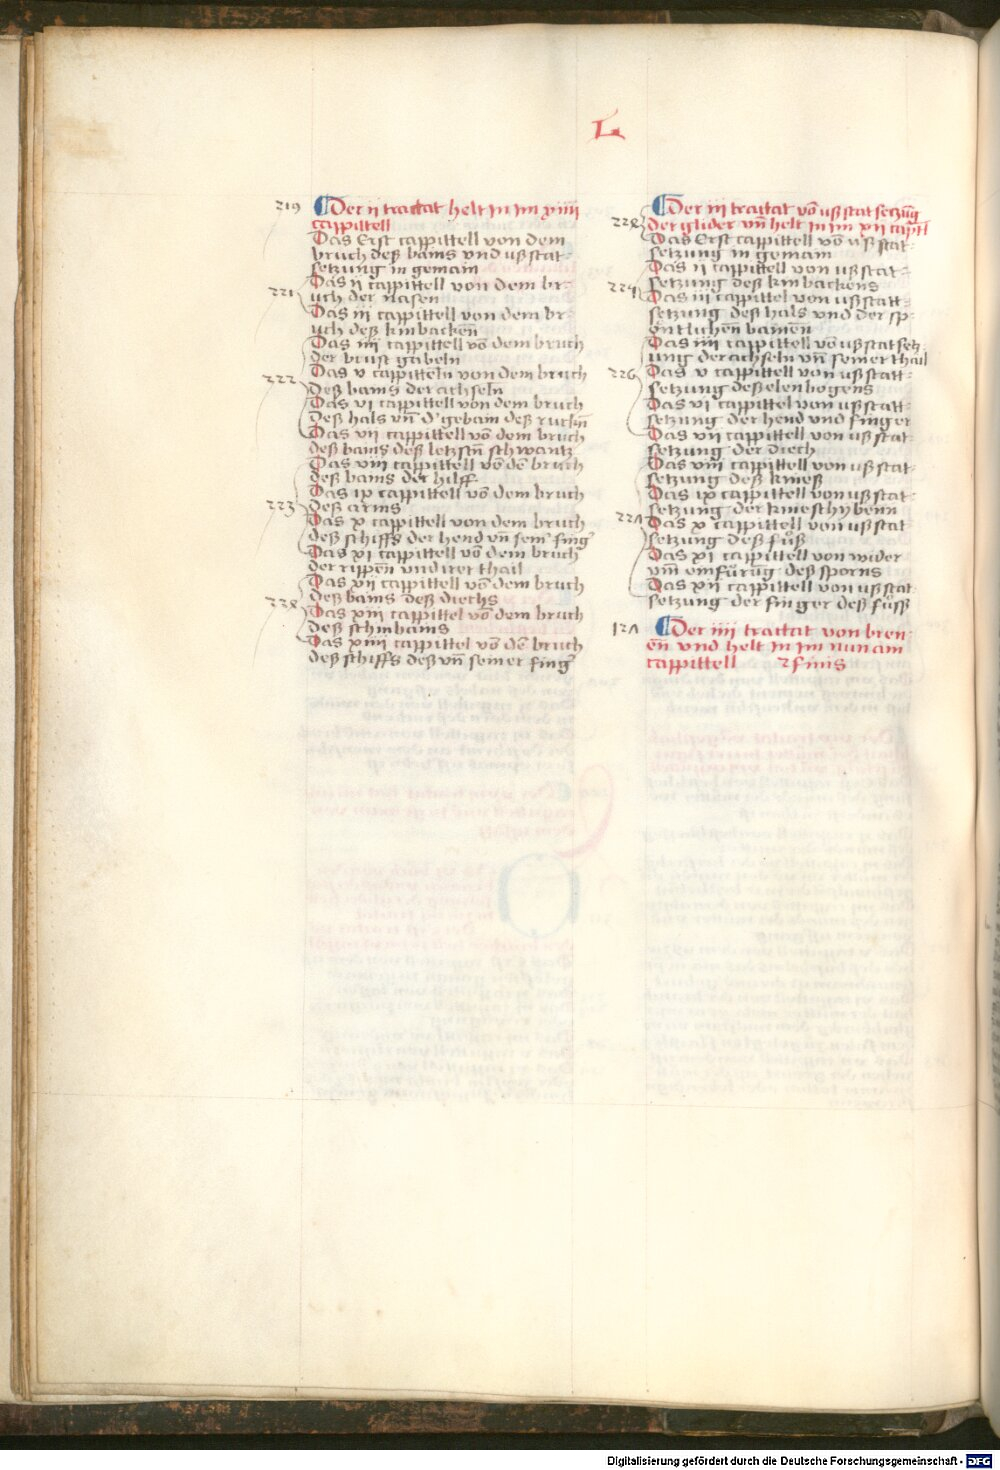 L
219 Der ij tractat helt in im xiiii
cappittell
Das Erst cappittell von dem
bruch deß bains vnd ußstat⸗
setzung in gemain
Das ij cappittell von dem br⸗
221 uch der nasen
Das iij cappittell von dem br⸗
uch deß kinbackēn
Das iiij cappittell vō dem bruch
der brust gabeln
Das v cappitteln von dem bruch
222 deß bains der achseln
Das vi cappittell von dem bruch
deß hals vn̄ d' gebain deß ruckn̄
Das vij cappittell vō dem bruch
deß bains deß letzstn̄ schwantz
Das viij cappittell vō dē bruch
deß bains der hilff
Das ix cappittell vō dem bruch
223 deß arms
Das x cappittell von dem bruch
deß schiffs der hend vn̄ sein' fing'
Das xi cappittell vō dem bruch
der rippēn vnd irer thail
Das xij cappittell vō dem bruch
deß bains deß diechs
Das xiij cappittel vō dem bruch
deß schinbains
Das xiiij cappittel vō dē bruch
deß schiffs deß vn̄ seiner fing'
Der iij tractat vō ußstat setzūg
der glider vn̄ helt in im xij cap̄tl
Das Erst cappittell vō ußstat⸗
setzung in gemain
Das ij cappittell von ußstat⸗
setzung deß kinbackens
Das iij cappittel von ußstatt⸗
setzung deß hals vnd der sp⸗
ontlichēn bainēn
Das iiij cappittell vō ußstat setz⸗
ung der achseln vn̄ seiner thail
226 Das v cappittell von ußstatt⸗
setzung deß elenbogens
Das vi cappittel von ußstatt⸗
setzung der hend vnd finger
Das vij cappittell von ußstat⸗
setzung der diech
Das viij cappittell von ußstat⸗
setzung deß knieß
Das ix cappittell von ußstat⸗
setzung der knieschybenn
Das x cappittell von ußstat
setzung deß fůß
Das xi cappittell von wider
vm̄ einfůrūg deß sporns
Das xij cappittell von ußstat⸗
setzung der finger deß fůß
Der iiij tractat von bren⸗
ēn vnd helt in im nun ain
cappittell finis
Digitalisierung gefördert durch die Deutsche Forschungsgemeinschaft - DFG